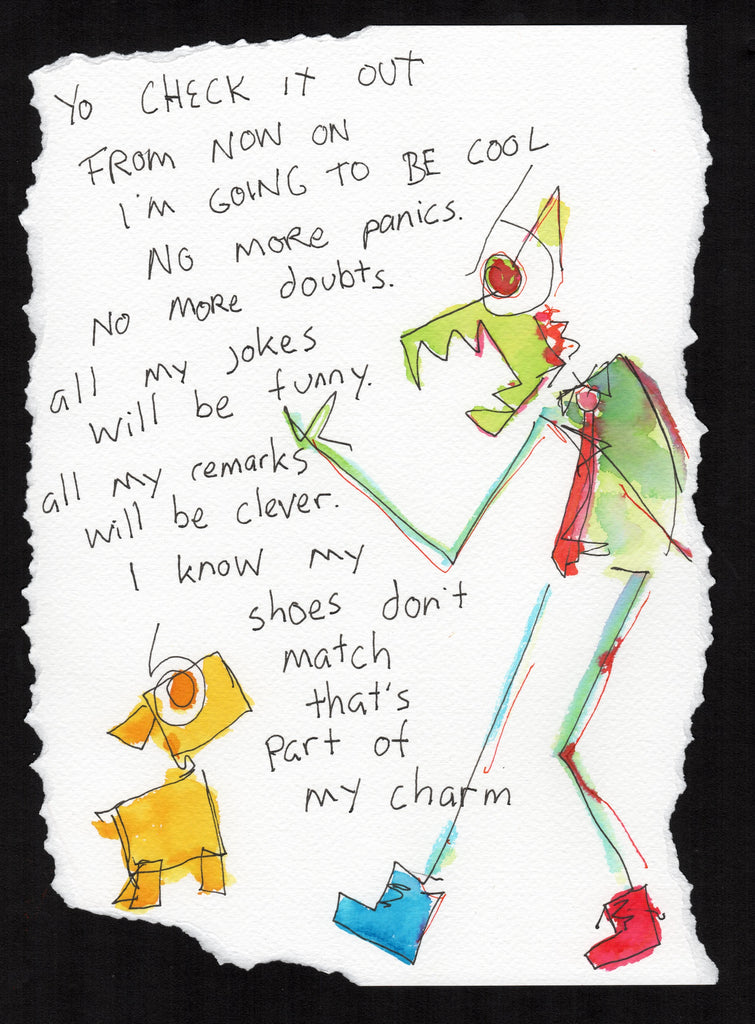 Yo CHECK IT OUT
FROM NOW ON
I'M GOING TO BE COOL
NO MORE panics.
NO MORE doubts.
all my jokes
will be funny.
all my remarks
will be clever.
I know my
shoes don't
match
that's
part of
my charm